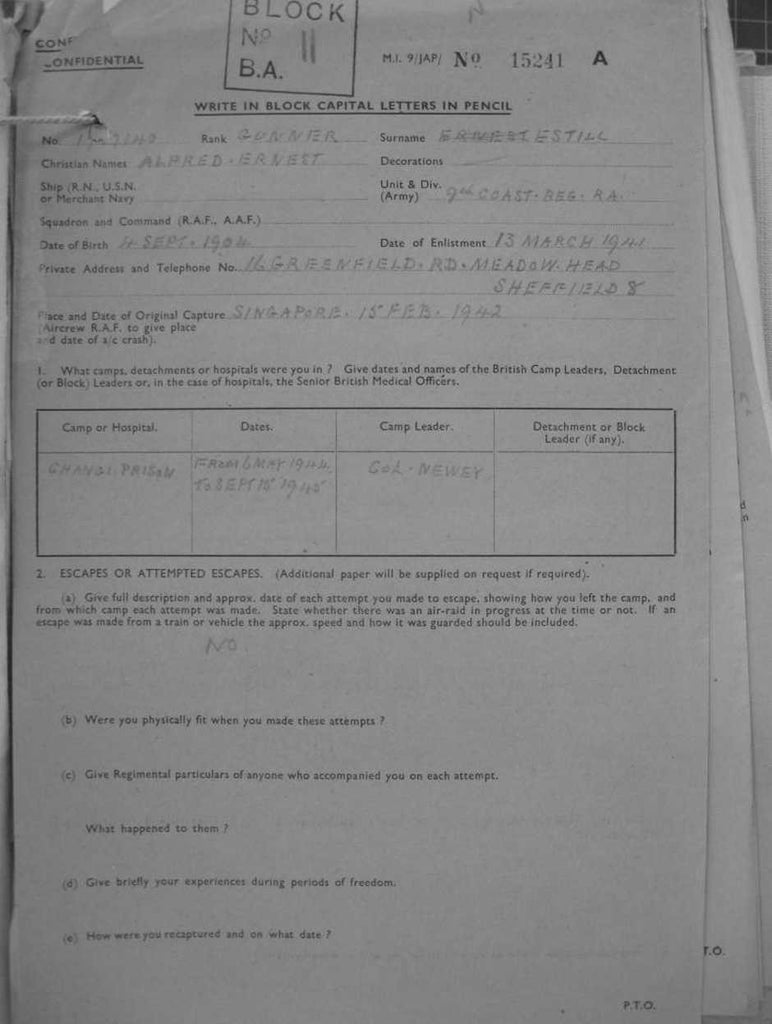 BLOCK
No 11
B.A.
CONF
CONFIDENTIAL
M.I. 9/JAP/ No 15241 A
WRITE IN BLOCK CAPITAL LETTERS IN PENCIL
No. Rank GUNNER Surname ERNEST ESTILL
Christian Names ALFRED. ERNEST Decorations
Ship (R.N., U.S.N. or Merchant Navy Unit & Div. (Army) 9th COAST. REG. RA.
Squadron and Command (R.A.F., A.A.F.)
Date of Birth 4 SEPT. 1904 Date of Enlistment 13 MARCH 1941
Private Address and Telephone No. 16 GREENFIELD. RD. MEADOW. HEAD
SHEFFIELD 8
Place and Date of Original Capture SINGAPORE. 15 FEB. 1942
(Aircrew R.A.F. to give place
and date of a/c crash).
1. What camps, detachments or hospitals were you in ? Give dates and names of the British Camp Leaders, Detachment
(or Block) Leaders or, in the case of hospitals, the Senior British Medical Officers.
Camp or Hospital. Dates. Camp Leader. Detachment or Block Leader (if any).
CHANGI. PRISON FROM 6 MAY 1944. COL. NEWEY
TO SEPT 15 1945
2. ESCAPES OR ATTEMPTED ESCAPES. (Additional paper will be supplied on request if required).
(a) Give full description and approx. date of each attempt you made to escape, showing how you left the camp, and
from which camp each attempt was made. State whether there was an air-raid in progress at the time or not. If an
escape was made from a train or vehicle the approx. speed and how it was guarded should be included.
NO
(b) Were you physically fit when you made these attempts ?
(c) Give Regimental particulars of anyone who accompanied you on each attempt.
What happened to them ?
(d) Give briefly your experiences during periods of freedom.
(e) How were you recaptured and on what date ?
T.O.
P.T.O.